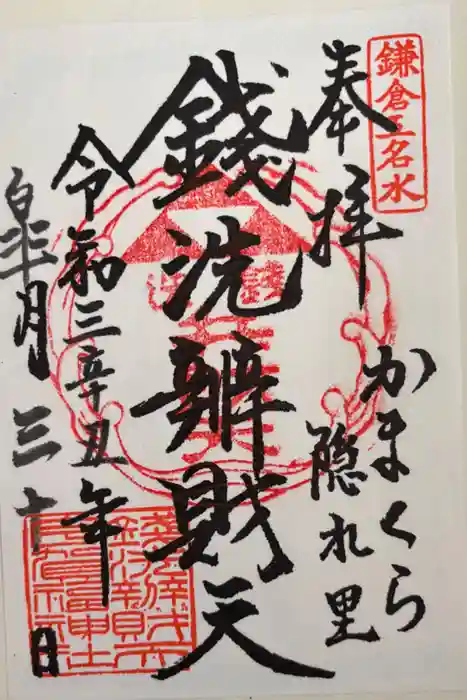 鎌倉五名水
奉拝
かまくら
隠れ里
銭洗
錢洗辨財天
令和三辛丑年
皐月三十日